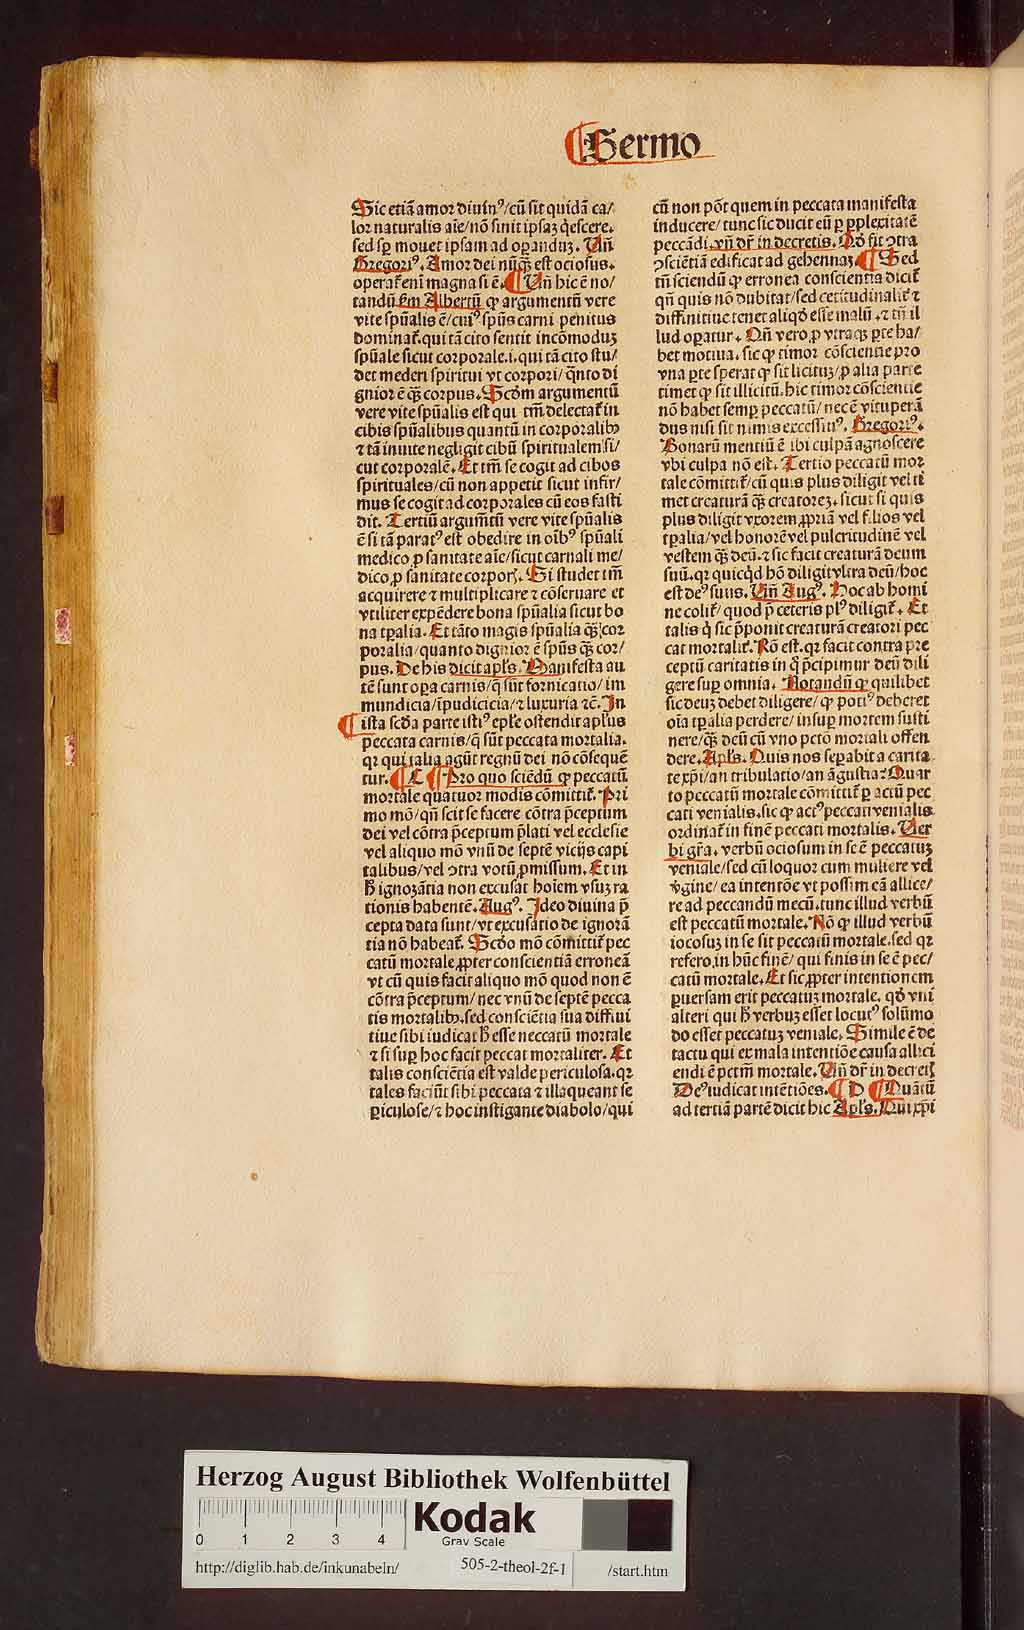 Sermo
Sic etiā amor diuin⁹/cū sit quidā ca/
lor naturalis aīe/nō sinit ipsaꝫ q̇escere.
sed sꝑ mouet ipsam ad oꝑanduꝫ. Vñ
Gregori⁹. Amor dei nūqꝫ est ociosus.
operat᷑ eni magna si ē. ¶ Vñ hic ē no/
tandū ẜm Albertū ꝙ argumentū vere
vite spūalis ē/cui⁹ spūs carni penitus
dominat᷑. qui tā cito sentit incōmoduꝫ
spūale sicut corporale.i. qui tā cito stu/
det mederi spiritui vt corpori/q̄nto di
gnior ē qꝫ corpus. Scd̄m argumentū
vere vite spūalis est qui tm̄ delectat᷑ in
cibis spūalibus quantū in corporalibꝫ
⁊ tā inuite negligit cibū spiritualem si/
cut corporalē. Et tm̄ se cogit ad cibos
spirituales/cū non appetit sicut infir/
mus se cogit ad corporales cū eos fasti
dit. Tertiū argumētū vere vite spūalis
ē si tā parat⁹ est obedire in oīb⁹ spūali
medico ꝓ sanitate aīe/sicut carnali me/
dico ꝓ sanitate corporꝭ. Si studet tm̄
acquirere ⁊ multiplicare ⁊ cōseruare et
vtiliter expēdere bona spūalia sicut bo
na tꝑalia. Et tāto magis spūalia qꝫ cor
poralia/quanto dignior ē spūs qꝫ cor/
pus. De his dicit apl̄s. Manifesta au
tē sunt oꝑa carnis/q̄ sūt fornicatio/im
mundicia/īpudicicia/⁊ luxuria ⁊c̄. In
¶ ista scd̄a parte isti⁹ epl̄e ostendit apl̄us
peccata carnis/q̄ sūt peccata mortalia.
qꝛ qui talia agūt regnū dei nō cōsequē
tur. ¶ C ¶ Pro quo sciēdū ꝙ peccatū
mortale quatuor modis cōmittit᷑. Pri
mo mō/qñ scit se facere cōtra p̄ceptum
dei vel cōtra p̄ceptum p̄lati vel ecclesie
vel aliquo mō vnū de septē vicijs capi
talibus/vel ꝯtra votū ꝓmissum. Et in
h̄ ignorātia non excusat hoīem vsuꝫ ra
tionis habentē. Aug⁹. Ideo diuina p̄
cepta data sunt/vt excusatio de ignorā
tia nō habeat᷑. Scd̄o mō cōmittit᷑ pec
catū mortale ꝓpter conscientiā erroneā
vt cū quis facit aliquo mō quod non ē
cōtra p̄ceptum/nec vnū de septē pecca
tis mortalibꝫ. sed consciētia sua diffini
tiue sibi iudicat h̄ esse neccatū mortale
⁊ si suꝑ hoc facit peccat mortaliter. Et
talis consciētia est valde periculosa. qꝛ
tales faciūt sibi peccata ⁊ illaqueant se
ꝑiculose/⁊ hoc instigante diabolo/qui
cū non pōt quem in peccata manifesta
inducere/tunc sic ducit eū ꝑ ꝑplexitatē
peccādi. vñ dr̄ in decretis. Qd̄ fit ꝯtra
ꝯsciētiā edificat ad gehennaꝫ. ¶ Sed
tn̄ sciendū ꝙ erronea conscientia dicit᷑
qñ quis nō dubitat/sed cetitudinalit᷑ ⁊
diffinitiue tenet aliqd̄ esse malū. ⁊ tn̄ il
lud oꝑatur. Qñ vero ꝓ vtraqꝫ ꝑte ha/
bet motiua. sic ꝙ timor cōscientie pro
vna ꝑte sperat ꝙ sit licituꝫ/ꝓ alia parte
timet ꝙ sit illicitū. hic timor cōscientie
nō habet semꝑ peccatū/nec ē vituperā
dus nisi sit nimis excessiu⁹. Gregori⁹.
Bonarū mentiū ē ibi culpā agnoscere
vbi culpa nō est. Tertio peccatū mor
tale cōmittit᷑/cū quis plus diligit vel ti
met creaturā qꝫ creatoreꝫ. sicut si quis
plus diligit vxorem ꝓpriā vel filios vel
tꝑalia/vel honorē vel pulcritudinē vel
vestem qꝫ deū. ⁊ sic facit creaturā deum
suū. qꝛ quicq̇d hō diligit vltra deū/hoc
est de⁹ suus. Vñ Aug⁹. Hoc ab homi
ne colit᷑/quod p̄ ceteris pl⁹ diligit᷑. Et
talis q̇ sic p̄ponit creaturā creatori pec
cat mortalit᷑. Rō est. qꝛ facit contra pre
ceptū caritatis in q̇ p̄cipimur deū dili
gere suꝑ omnia. Notandū ꝙ quilibet
sic deuꝫ debet diligere/ꝙ poti⁹ deberet
oīa tꝑalia perdere/insuꝑ mortem susti
nere/qꝫ deū cū vno pctō mortali offen
dere. Apl̄s. Quis nos seꝑabit a carita
te xp̄i/an tribulatio/an āgustia? Quar
to peccatū mortale cōmittit᷑ ꝑ actū pec
cati venialis. sic ꝙ act⁹ peccati venialis
ordinat᷑ in finē peccati mortalis. Ver
bi gr̄a. verbū ociosum in se ē peccatuꝫ
veniale/sed cū loquor cum muliere vel
v̇gine/ea intentōe vt possim eā allice/
re ad peccandū mecū. tunc illud verbū
est peccatū mortale. Nō ꝙ illud verbū
iocosuꝫ in se sit peccatū mortale. sed qꝛ
refero.in hūc finē/qui finis in se ē pec/
catū mortale. Et sic ꝓpter intentionem
ꝑuersam erit peccatuꝫ mortale. qd̄ vni
alteri qui h̄ verbuꝫ esset locut⁹ solūmo
do esset peccatuꝫ veniale. Simile ē de
tactu qui ex mala intentiōe causa allici
endi ē pctm̄ mortale. Vñ dr̄ in decretꝭ
De⁹ iudicat intētiōes. ¶ D ¶ Quātū
ad tertiā partē dicit hic Apl̄s. Qui xp̄i
Herzog August Bibliothek Wolfenbüttel
0 1 2 3 4
Kodak
Gray Scale
http://diglib.hab.de/inkunabeln/ 505-2-theol-2f-1 /start.htm